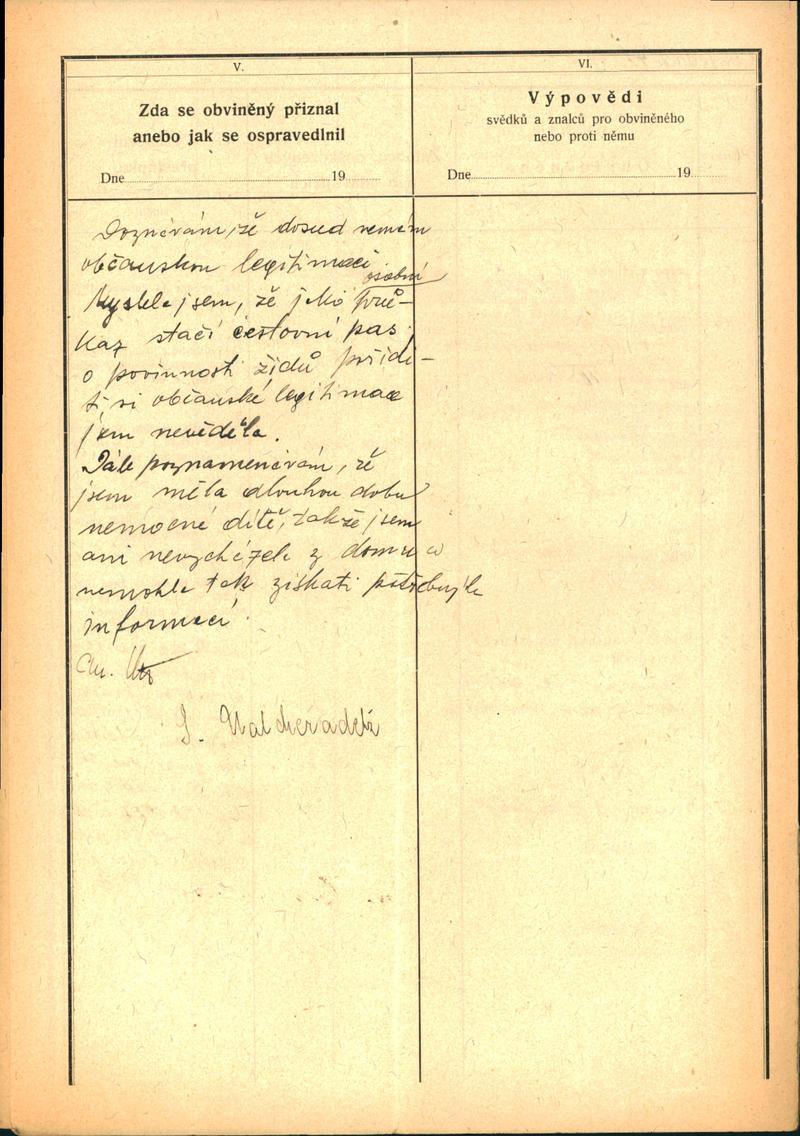 V.
Zda se obviněný přiznal
anebo jak se ospravedlnil
Dne 19
VI.
Výpovědi
svědků a znalců pro obviněného
nebo proti němu
Dne 19
Doznávám, že dosud nemám
občanskou legitimaci.
osobní
Myslela jsem, že jako prů-
kaz stačí cestovní pas.
o povinnosti židů pořídi-
ti si občanské legitimace
jsem nevěděla.
Dále poznamenávám, že
jsem měla dlouhou dobu
nemocné dítě, takže jsem
ani nevycházela z domu a
nemohla tak získati potřebných
informací.